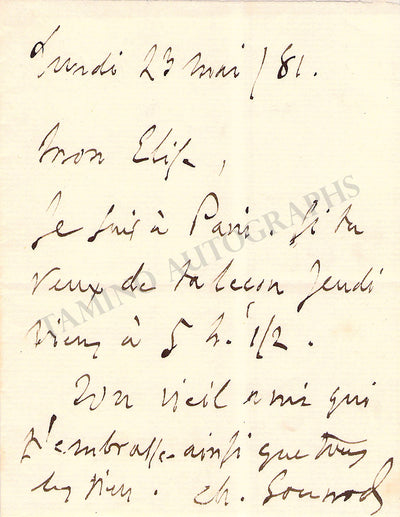 Lundi 23 mai / 81.
Mon Elise,
Je suis à Paris. Si tu
veux de ta leçon Jeudi
viens à 5 h. 1/2.
Ton vieil ami qui
t'embrasse ainsi que tous
les tiens. Ch. Gounod
TAMINO AUTOGRAPHS